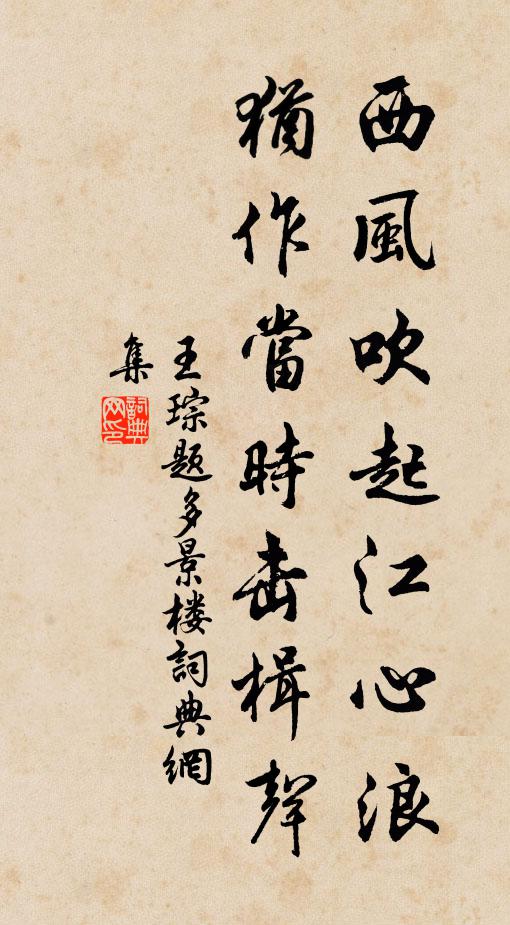 西風吹起江心浪
猶作當時击楫聲
王琮题多景楼詞典網
集
詞典网印